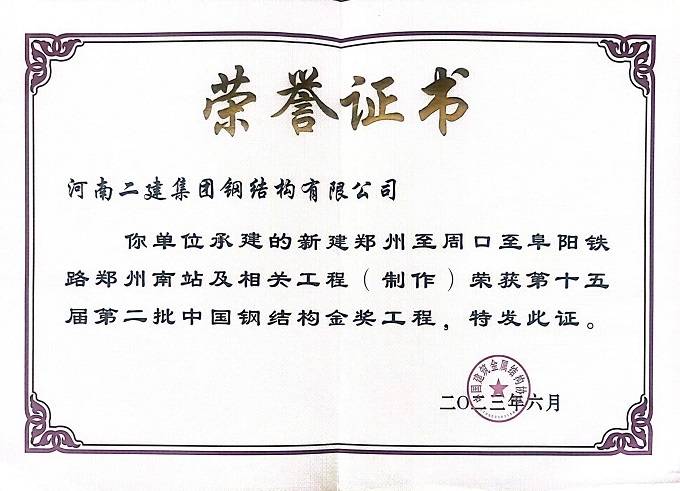 荣誉证书
河南二建集团钢结构有限公司
你单位承建的新建郑州至周口至阜阳铁
路郑州南站及相关工程(制作)荣获第十五
届第二批中国钢结构金奖工程,特发此证。
中国建筑金属结构协会
二〇二三年六月